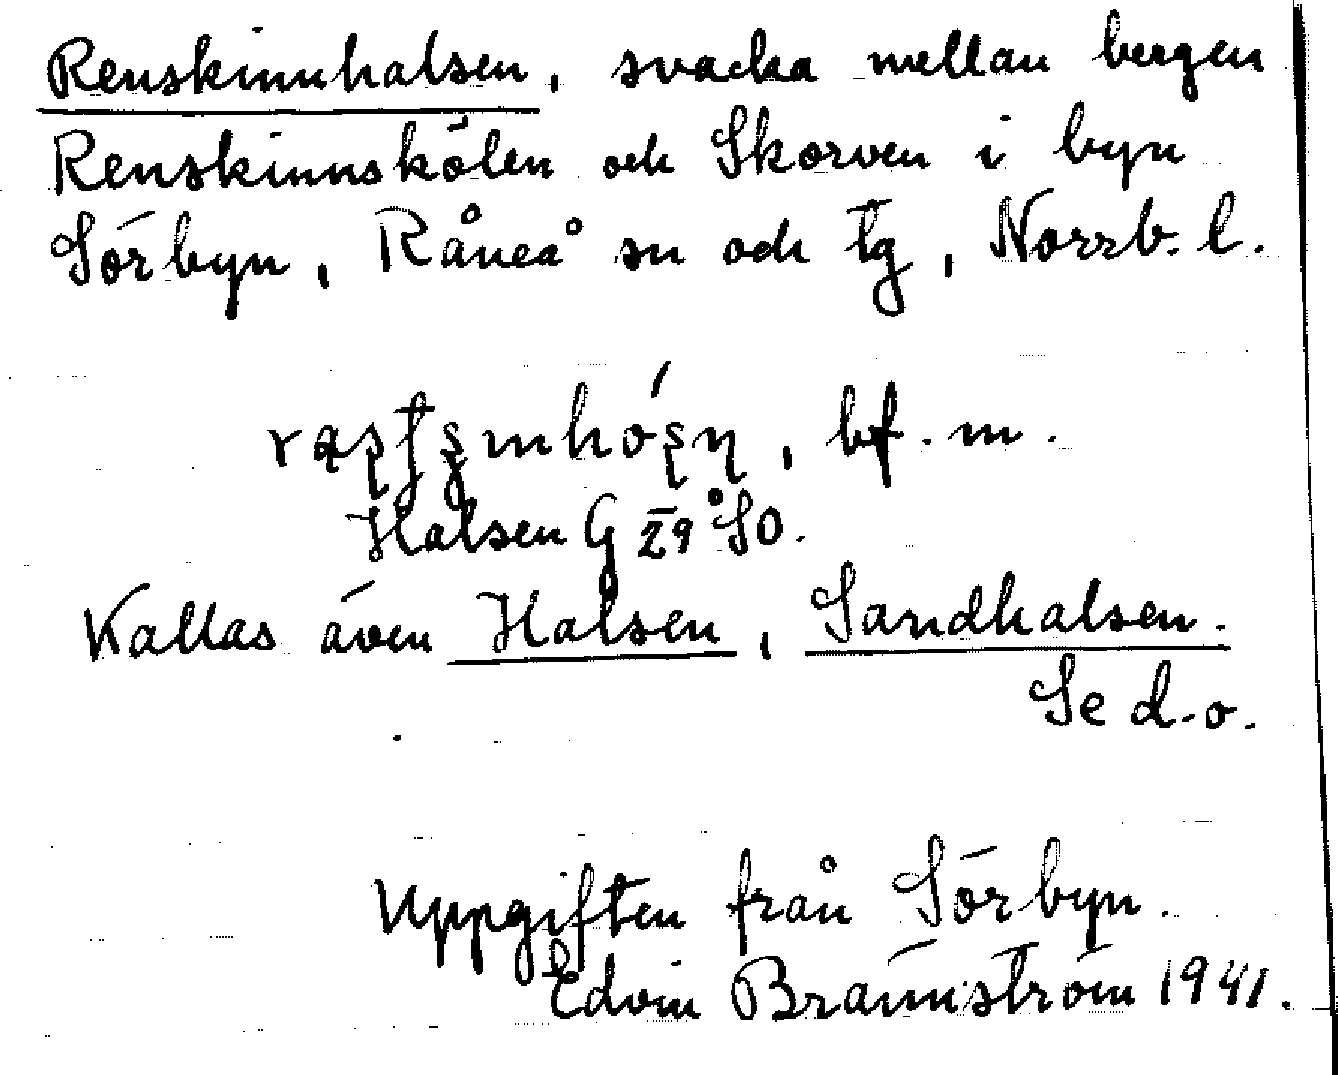 Renskinnhalsen, svacka mellan bergen
Renskinnskölen och Skorven i byn
Sörbyn, Råneå sn och tg, Norrb. l.
bf. m.
Halsen G 29 SO.
Kallas även Halsen, Sandhalsen.
Se d.o.
Uppgiften från Sörbyn.
Edvin Brännström 1941.